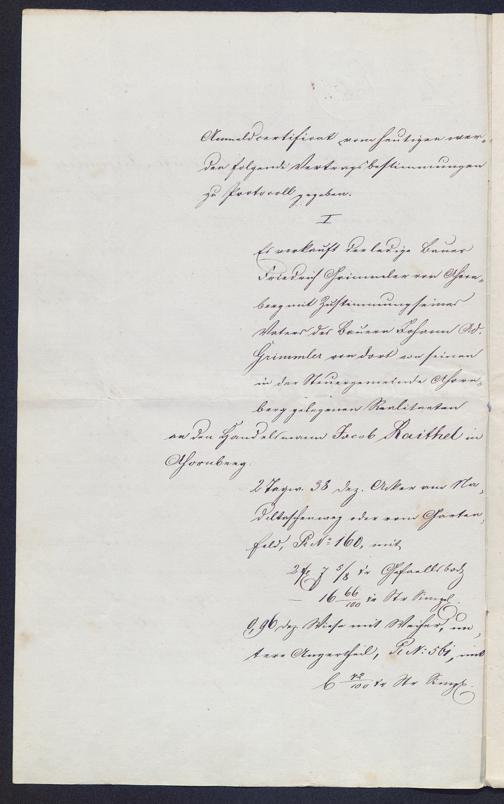 Anmeldcertificat vom heutigen wer-
den folgende Vertragsbestimmungen
zu Protocoll gegeben.
I
Es verkauft der ledige Bauer
Friedrich Grimmler von Thorn-
berg mit Zustimmung seines
Vaters des Bauern Johann Ad.
Grimmler von dort von seinen
in der Steuergemeinde Thorn-
berg gelegenen Realitaeten
an den Handelsmann Jacob Raithel in
Thornberg.
2 Tagw. 38 Dez. Acker am
oder vom Garten-
feld, Pl. N: 160, mit
5/8 kr
16 66/100 kr Str Simpl.
0,96 dez. Wiese mit Weiher, un-
tere Angertheil, Pl. N: 561, mit
6 72/100 kr Str Simpl.